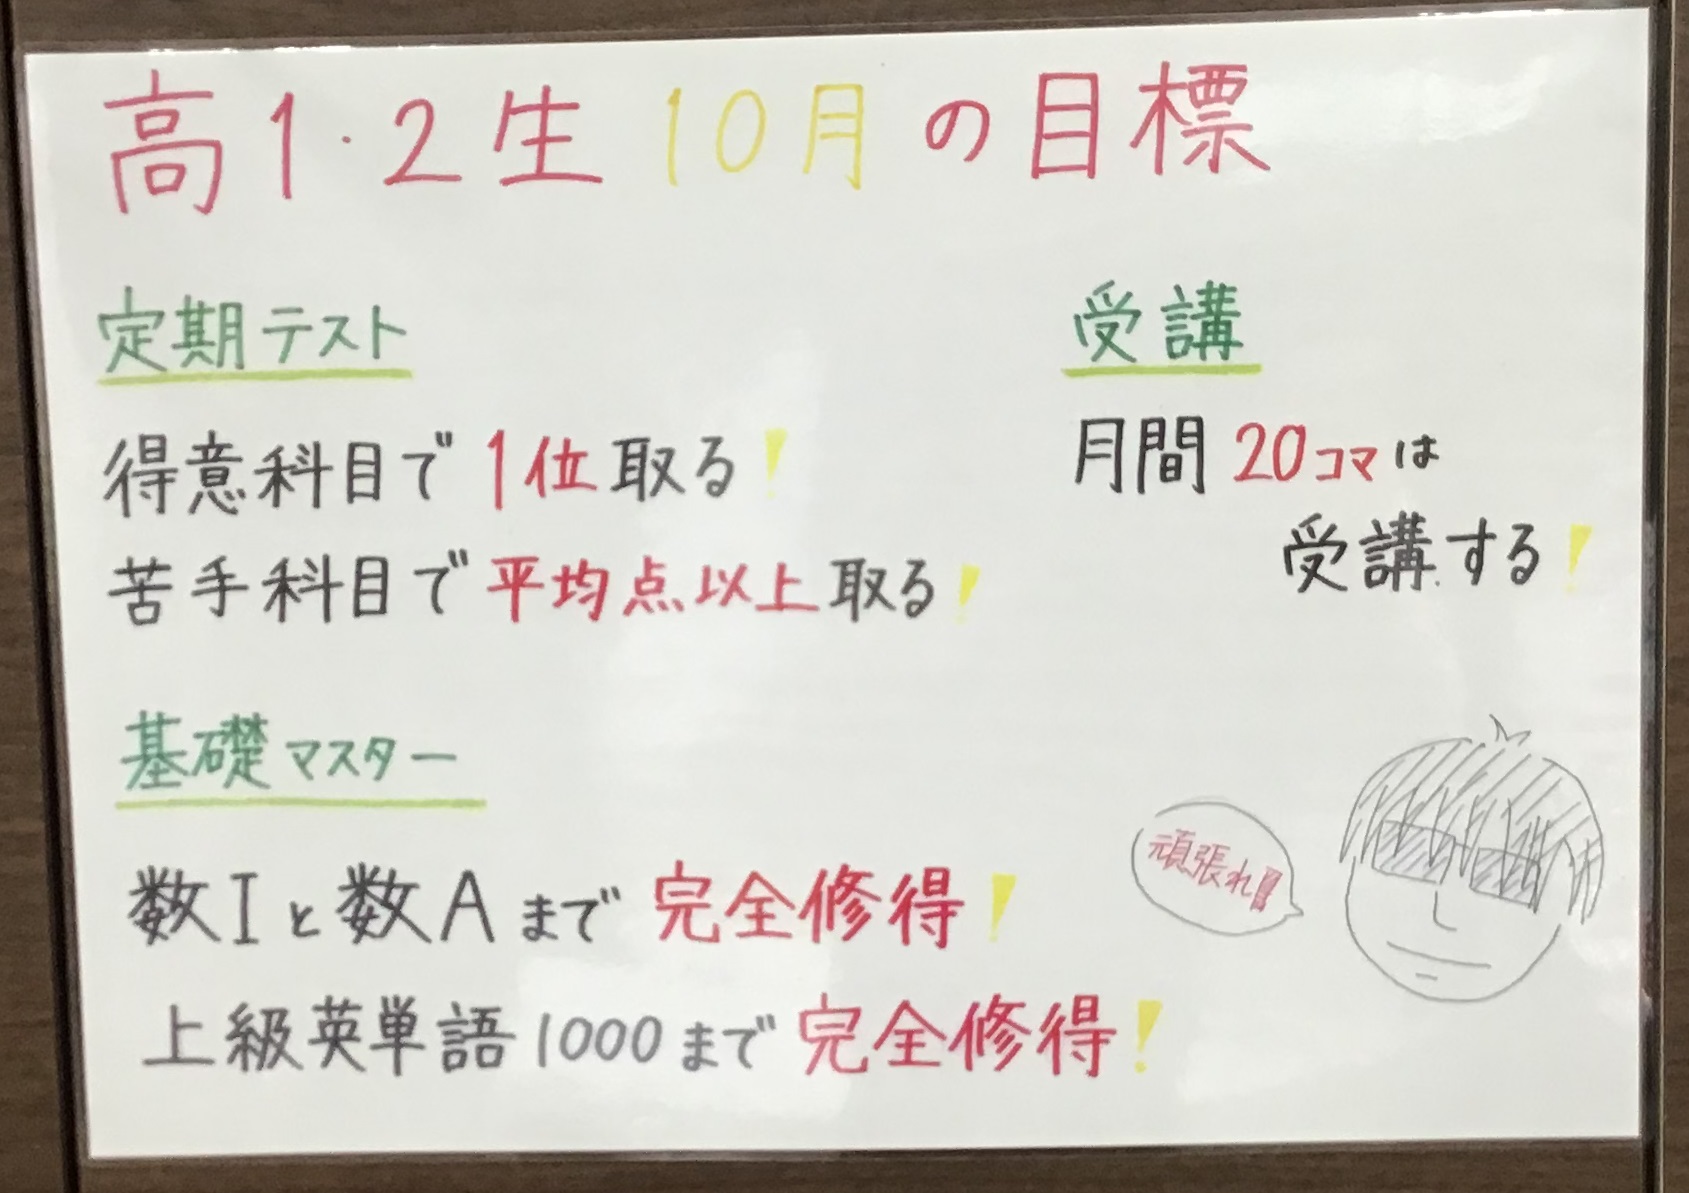 高1·2生 10月の目標
定期テスト
得意科目で1位取る!
苦手科目で平均点以上取る!
受講
月間20コマは
受講する!
基礎マスター
数Iと数Aまで完全修得!
上級英単語1000まで完全修得!
頑張れ!!